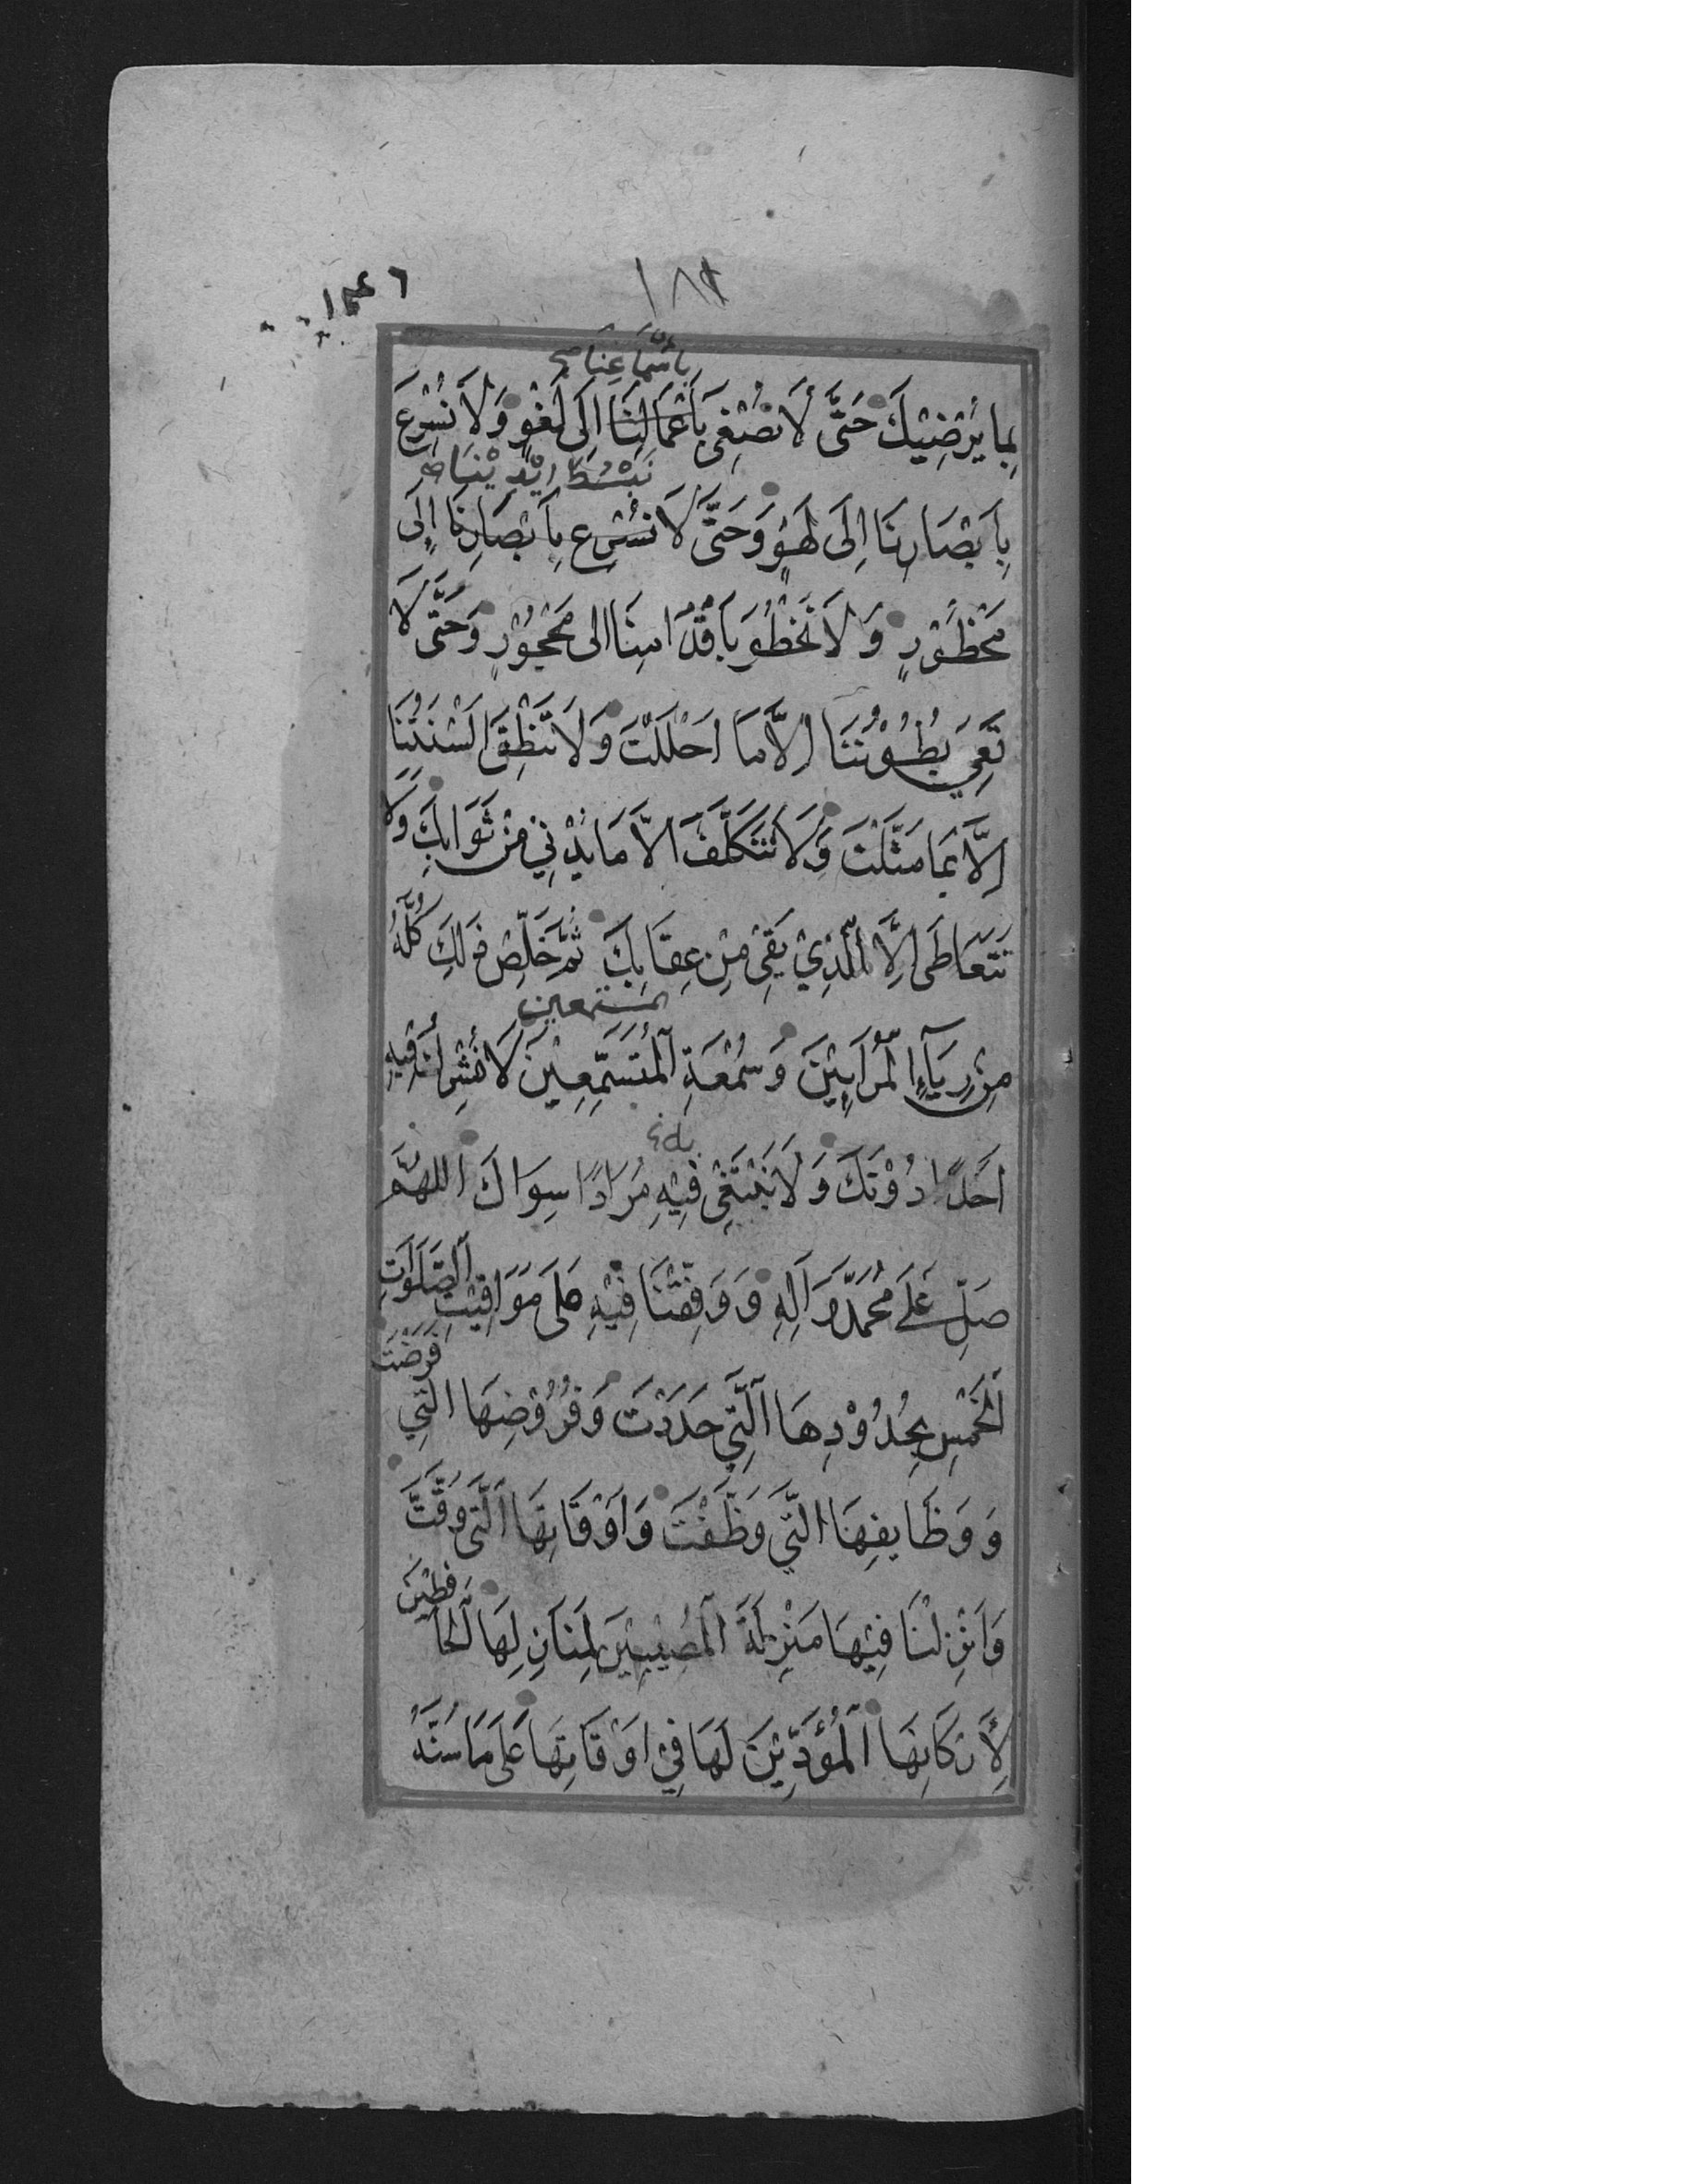 ١٨٢
بِأَسْمَاعِنَا صح
بِما يُرْضِيْكَ حَتَّى لَا نُصْغِىَ بِأَعْمَالِنَا اِلَى لَغْوٍ وَلَا نُسْرِعَ
نَبْسُطَ اَيْدِيْنَا صح
بِاَبْصَارِنَا اِلَى لَهْوٍ وَحَتَّى لَا نُسْرِع بِاَبْصَارِنَا اِلَى
مَحْظُوْرٍ وَلَا نَخْطُوَ بِاَقْدَامِنَا الى مَحْجُوْرٍ وَحَتَّى لَا
تَعِيَ بُطُوْنُنَا اِلَّا مَا اَحْلَلْتَ وَلَا تَنْطِقَ اَلْسِنَتُنَا
اِلَّا بِمَا مَثَّلْتَ وَلَا نَتَكَلَّفَ الّا مَا يُدْنِي مِنْ ثَوَابِكَ وَلَا
نَتَعَاطَى اِلَّا الَّذِيْ يَقِىْ مِنْ عِقَابِكَ ثُمَّ خَلِّصْ ذَلِكَ كُلَّهُ
المستمعين
مِنْ رِيَآءِ الْمُرَائِيْنَ وَسُمْعَةِ الْمُتَسَمِّعِيْنَ لَا نُشْرِكُ فِيهِ
بِهِ
اَحَدًا دُوْنَكَ وَلَا نَبْتَغِىْ فِيْهِ مُرَادًا سِوَاكَ اَللهُمَّ
صَلِّ عَلَى مُحَمَّدٍ وَآلِهِ وَوَقِّفْنَا فِيْهِ عَلَى مَوَاقِيْتِ الصَّلَوَاتِ
الْخَمْسِ بِحُدُوْدِهَا الَّتِي حَدَدْتَ وَفُرُوْضِهَا الَّتِي فَرَضْتَ
وَوَظَايفِهَا الَّتِي وَظَّفْتَ وَاَوْقَاتِهَا الَّتِي وَقَّتَّ
وَاَنْزِلْنَا فِيْهَا مَنْزِلَةَ الْمُصِيْبِيْنَ لِمَنَازِلِهَا الْحَافِظِيْنَ
لِأَرْكَانِهَا الْمُؤَدِّيْنَ لَهَا فِيْ اَوْقَاتِهَا عَلَى مَا سَنَّهُ